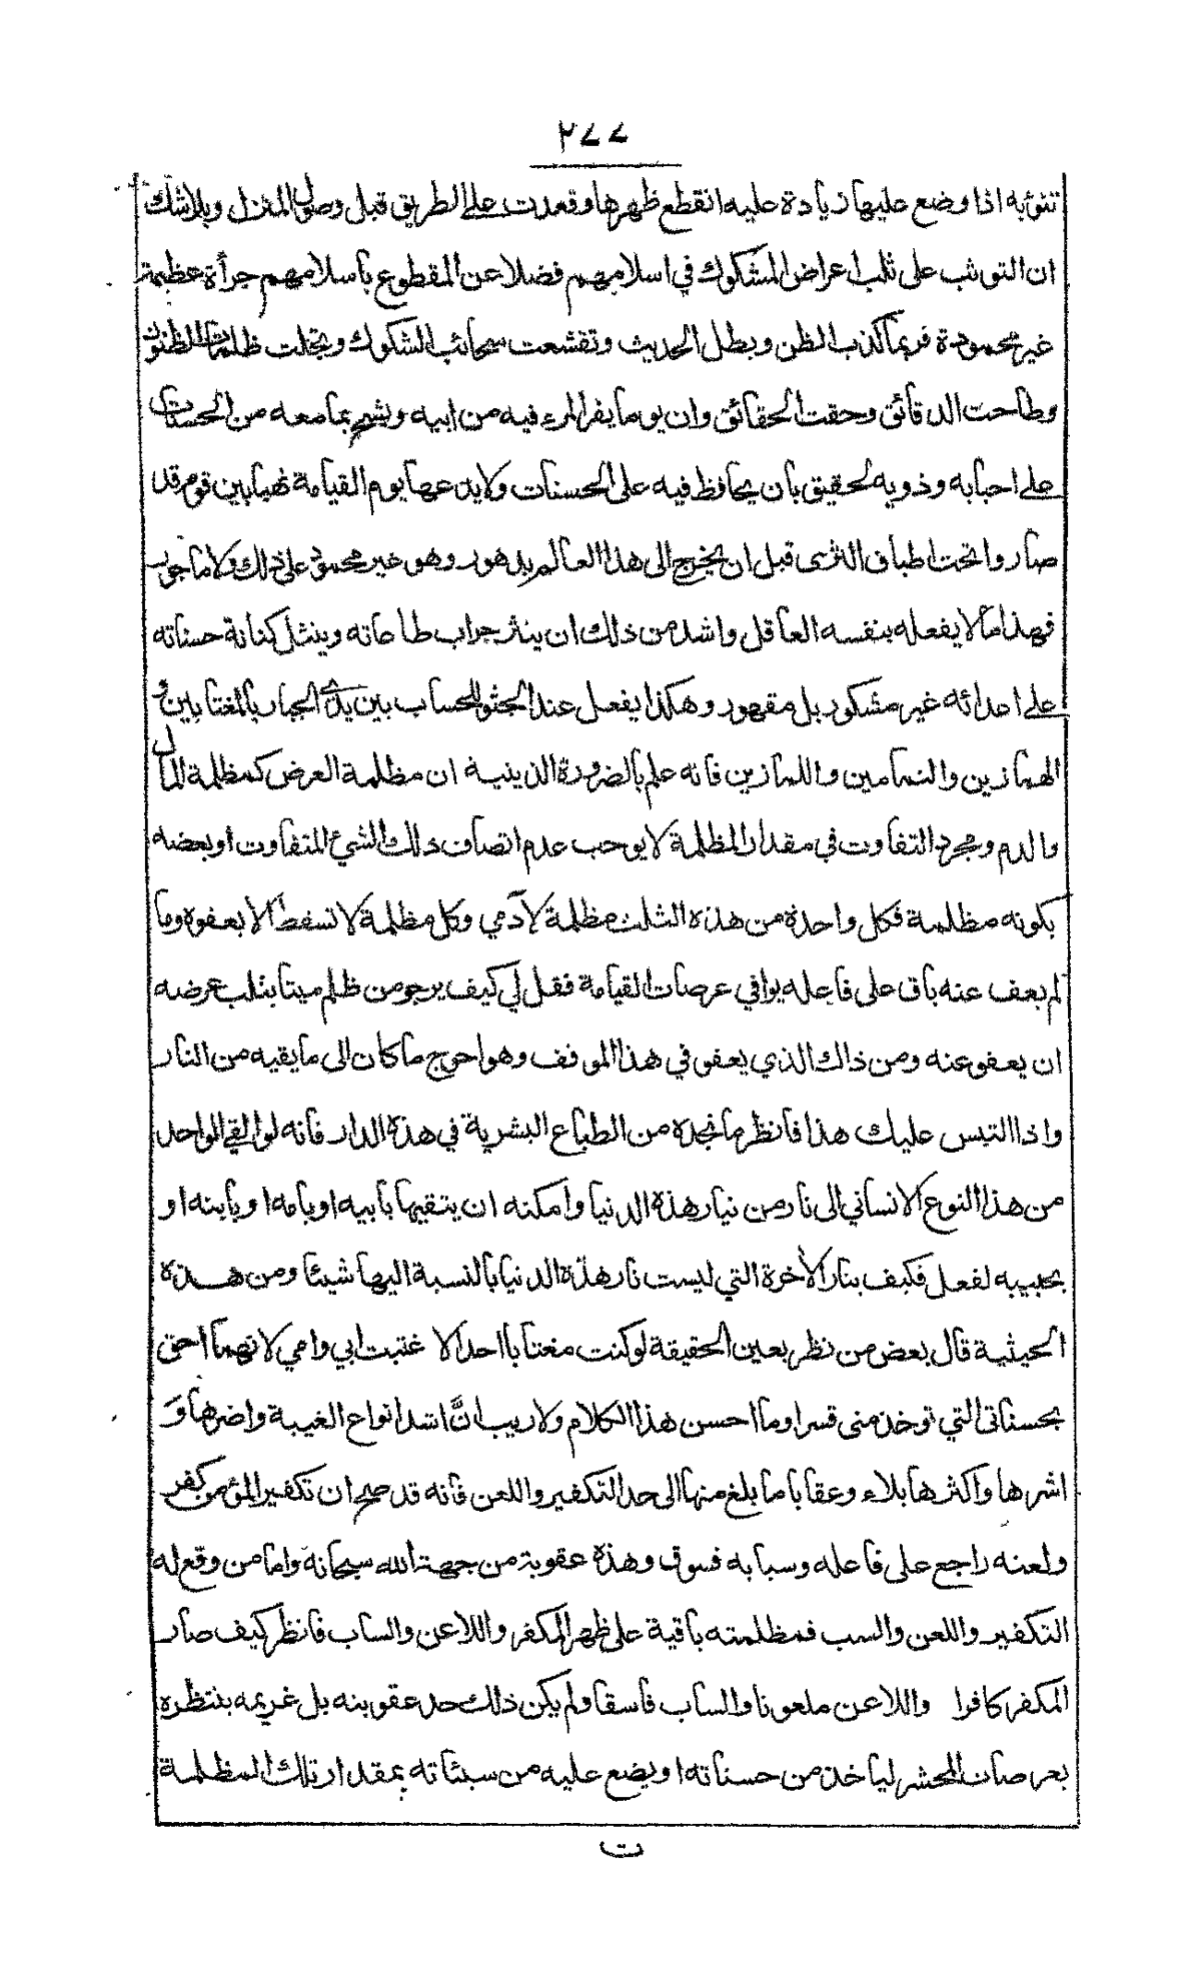 ٢٧٧
تنوء به اذا وضع عليها زيادة عليه انقطع ظهرها وقعدت على الطريق قبل وصول المنزل وبلاشك
ان التوثب على ثلب اعراض المشكوك في اسلامهم فضلا عن المقطوع باسلامهم جرأة عظيمة
غير محمودة فربما كذب الظن وبطل الحديث وتقشعت سحائب الشكوك وتجلت ظلمات الظنون
وطاحت الدقائق وحقت الحقائق وان يوما يفر المرء فيه من ابيه ويشح بما معه من الحسنات
على احبابه وذويه لحقيق بان يحافظ فيه على الحسنات ولا يدعها يوم القيامة نهبا بين قوم قد
صاروا تحت اطباق الثرى قبل ان يخرج الى هذا العالم بدهور وهو غير محمود على ذلك ولا ماجور
فهذا ما لا يفعله بنفسه العاقل واشد من ذلك ان ينثر جراب طاعاته وينثل كنانة حسناته
على اعدائه غير مشكور بل مقهور وهكذا يفعل عند الجثو للحساب بين يدي الجبار بالمغتابين و
الهمازين والنمامين واللمازين فانه علم بالضرورة الدينية ان مظلمة العرض كمظلمة المال
والدم ومجرد التفاوت في مقدار المظلمة لا يوجب عدم اتصاف ذلك الشيء المتفاوت او بعضه
بكونه مظلمة فكل واحدة من هذه الثلث مظلمة لآدمي وكل مظلمة لا تسقط الا بعفوه وما
لم يعف عنه باق على فاعله يوافي عرصات القيامة فقل لي كيف يرجو من ظلم ميتا بثلب عرضه
ان يعفو عنه ومن ذاك الذي يعفو في هذا الموقف وهو احوج ما كان الى ما يقيه من النار
واذا التبس عليك هذا فانظر ما نجده من الطباع البشرية في هذه الدار فانه لو القي الواحد
من هذا النوع الانساني الى نار من نيار هذه الدنيا وامكنه ان يتقيها بابيه او بامه او بابنه او
بحبيبه لفعل فكيف بنار الأخرة التي ليست نار هذه الدنيا بالنسبة اليها شيئا ومن هذه
الحيثية قال بعض من نظر بعين الحقيقة لو كنت مغتابا احدا لا غتبت ابي وامي لانهما احق
بحسناتى التي توخذ منى قسرا وما احسن هذا الكلام ولا ريب انَّ اشد انواع الغيبة واضرها وَ
اشرها واكثرها بلاء وعقابا ما بلغ منها الى حد التكفير واللعن فانه قد صح ان تكفير المؤمن كفر
ولعنه راجع على فاعله وسبابه فسوق وهذه عقوبة من جهة الله سبحانه واما من وقع له
التكفير واللعن والسب فمظلمته باقية على ظهر المكفر واللاعن والساب فانظر كيف صار
المكفر كافرا واللاعن ملعونا والساب فاسقا ولم يكن ذلك حد عقوبته بل غريمه ينتظره
بعرصات المحشر لياخذ من حسناته او يضع عليه من سيئاته بمقدار تلك المظلمة
ت